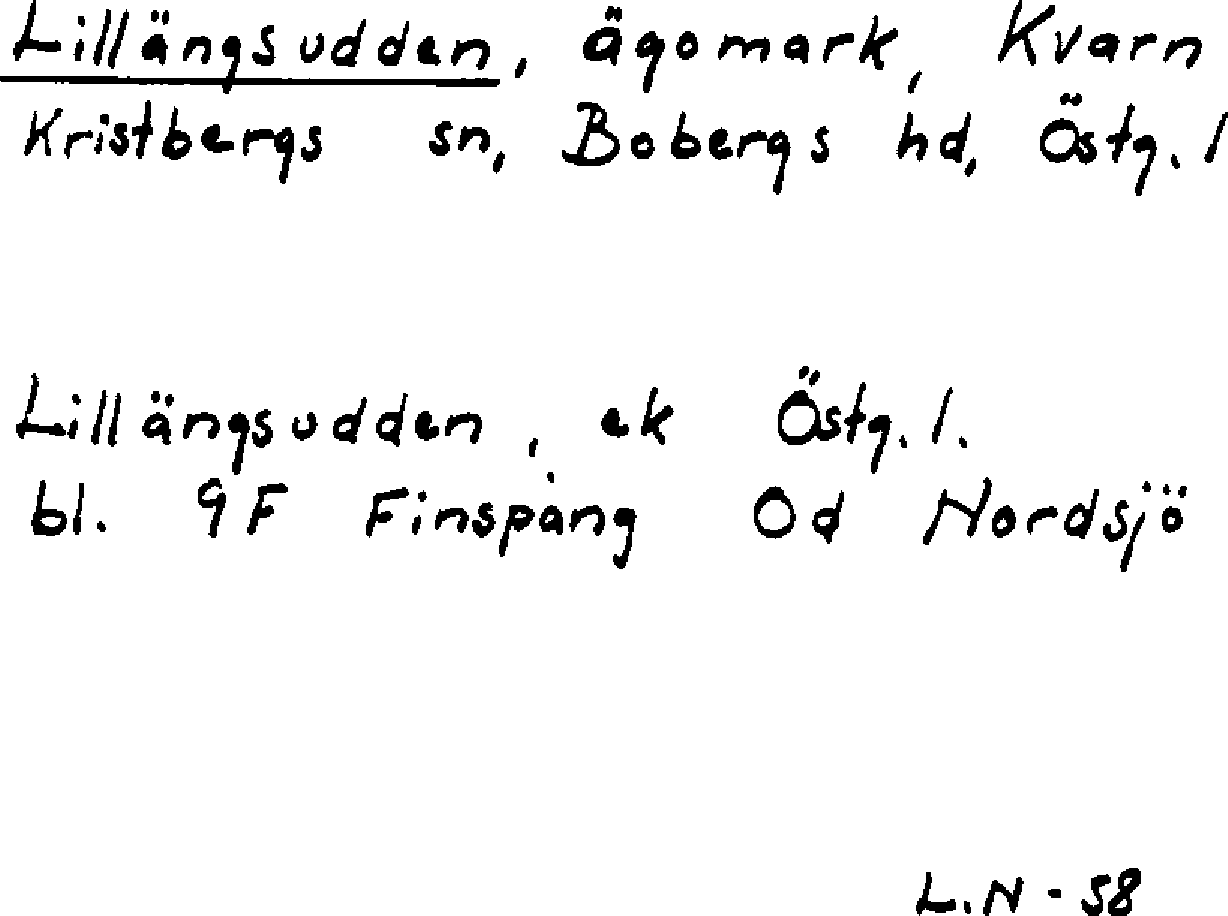 Lillängsudden, ägomark, Kvarn
Kristbergs sn, Bobergs hd, Östg. l
Lillängsudden, ek Östg. l.
bl. 9F Finspång 0d Nordsjö
L.N - 58